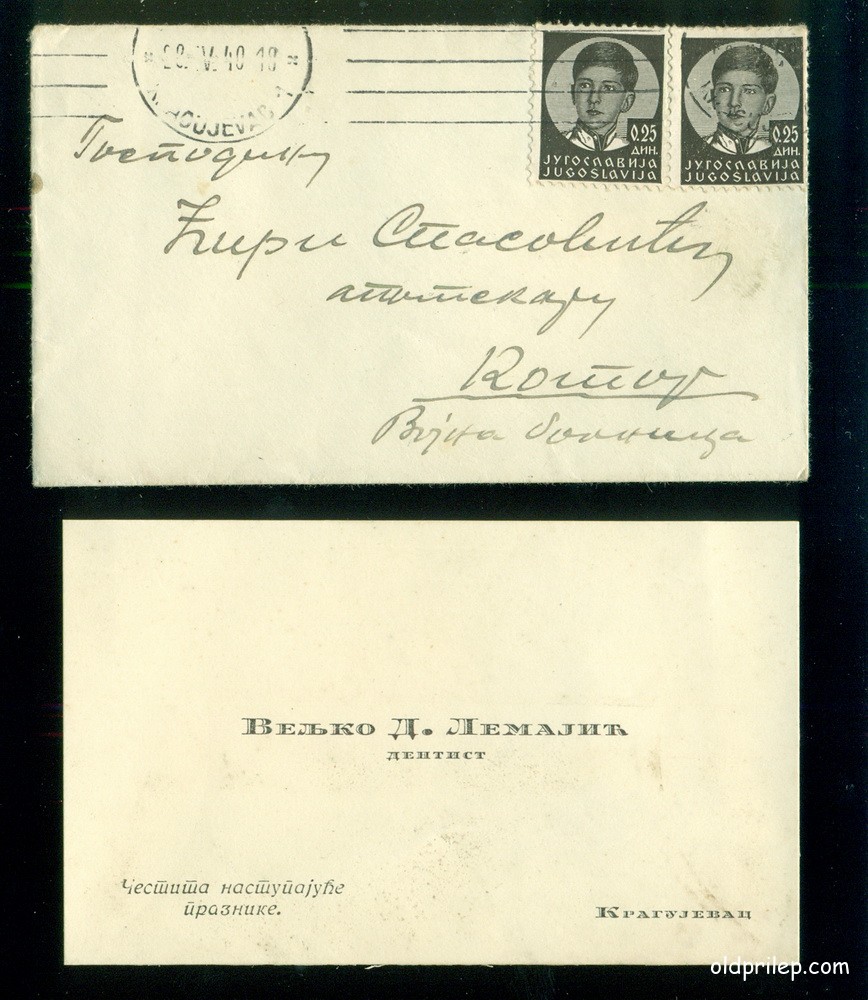 28. IV. 40 18
0.25
ДИН.
ЈУГОСЛАВИЈА
JUGOSLAVIJA
0.25
ДИН.
ЈУГОСЛАВИЈА
JUGOSLAVIJA
Господину
Ћири Спасовићу
апотекару
Котор
Војна болница
ВЕЉКО Д. ЛЕМАЈИЋ
ДЕНТИСТ
Честита наступајуће
празнике.
КРАГУЈЕВАЦ
oldprilep.com